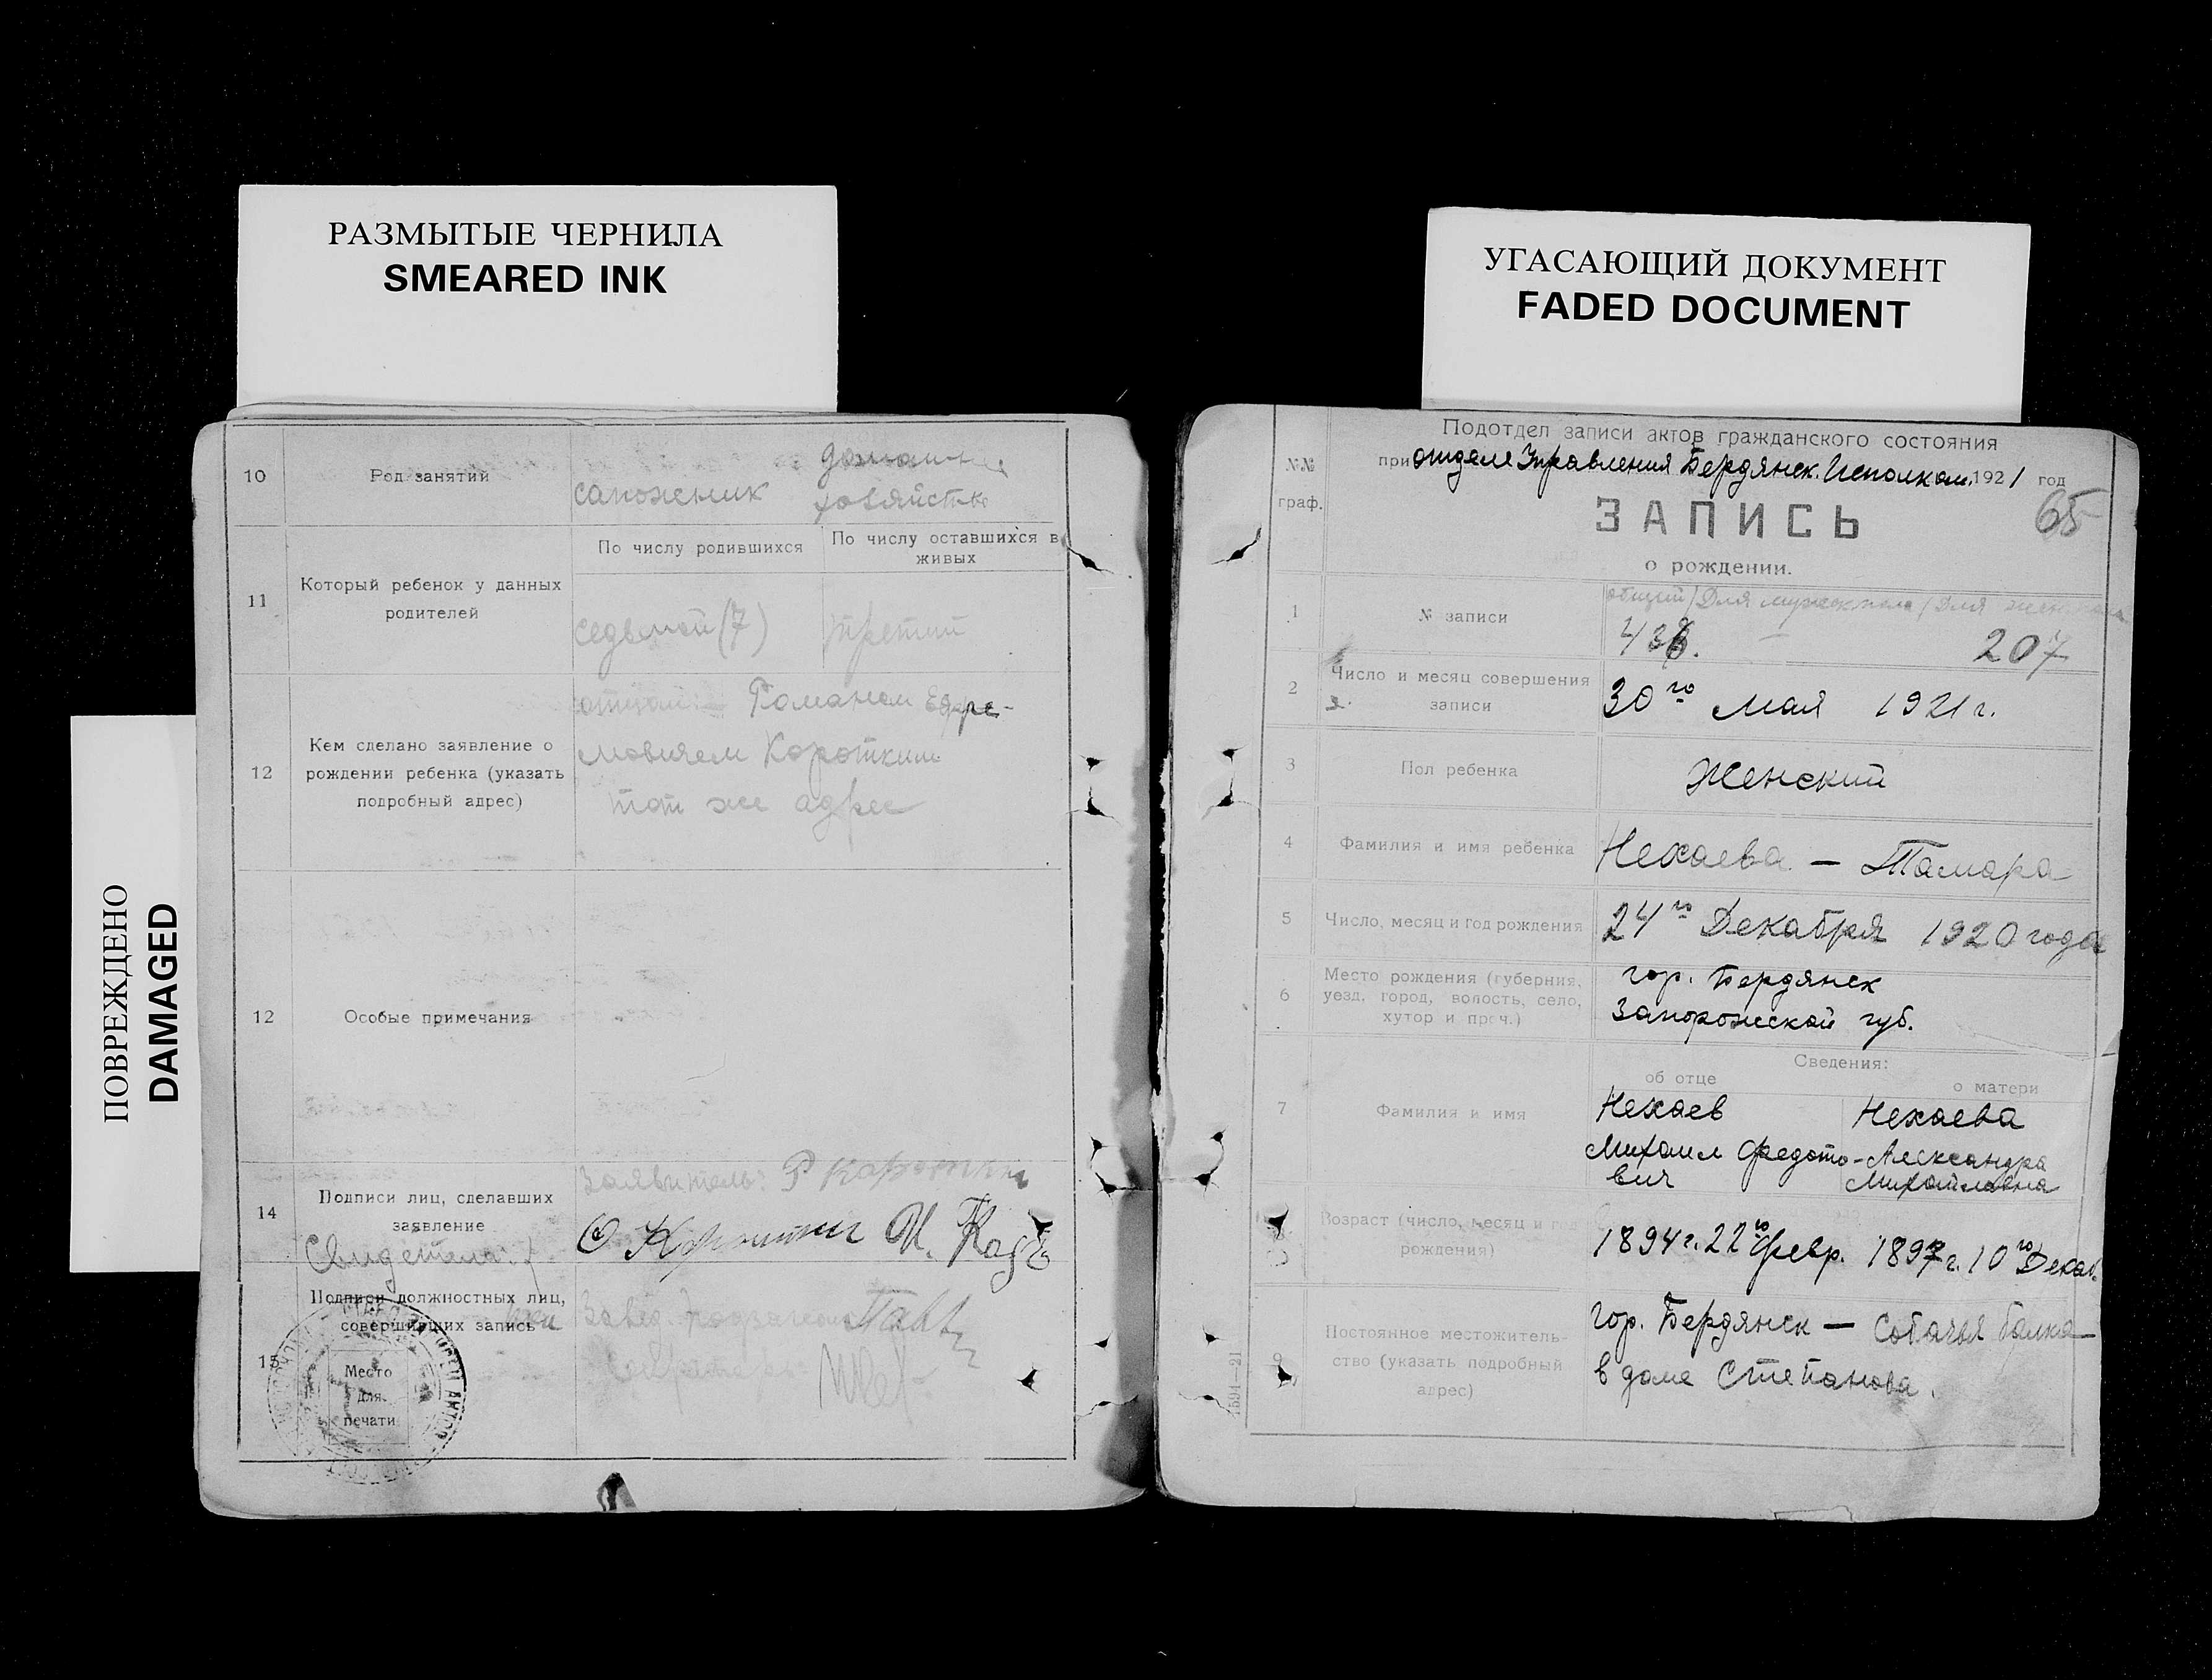 РАЗМЫТЫЕ ЧЕРНИЛА
SMEARED INK
ПОВРЕЖДЕНО
DAMAGED
10
Род занятий
сапожник
хозяйство
11
Который ребенок у данных
родителей
По числу родившихся
По числу оставшихся в
живых
седьмой (7)
третий
12
Кем сделано заявление о
рождении ребенка (указать
подробный адрес)
отцом Романом Ефре-
мовичем Коротким
тот же адрес
12
Особые примечания
14
Подписи лиц, сделавших
заявление
Свидетели:
Заявитель: Р
15
Подписи должностных лиц,
совершивших запись
Завед.
Место
для
печати
УГАСАЮЩИЙ ДОКУМЕНТ
FADED DOCUMENT
№№
граф.
Подотдел записи актов гражданского состояния
при отделе Управления Бердянск. Исполком. 1921 год
65
ЗАПИСЬ
о рождении.
1
№ записи
общий / Для мужск. пола / Для женск. пола
207
2
Число и месяц совершения
записи
30го Мая 1921 г.
3
Пол ребенка
Женский
4
Фамилия и имя ребенка
Нехаева — Тамара
5
Число, месяц и год рождения
24го Декабря 1920 года
6
Место рождения (губерния,
уезд, город, волость, село,
хутор и проч.)
гор. Бердянск
Запорожской губ.
Сведения:
об отце
о матери
7
Фамилия и имя
Нехаев
Михаил Федото-
вич
Нехаева
Александра
Михайловна
Возраст (число, месяц и год
рождения)
1894 г. 22го Февр.
1897 г. 10го Декаб.
9
Постоянное местожитель-
ство (указать подробный
адрес)
гор. Бердянск — Собачья балка —
в доме Степанова.
1594—21